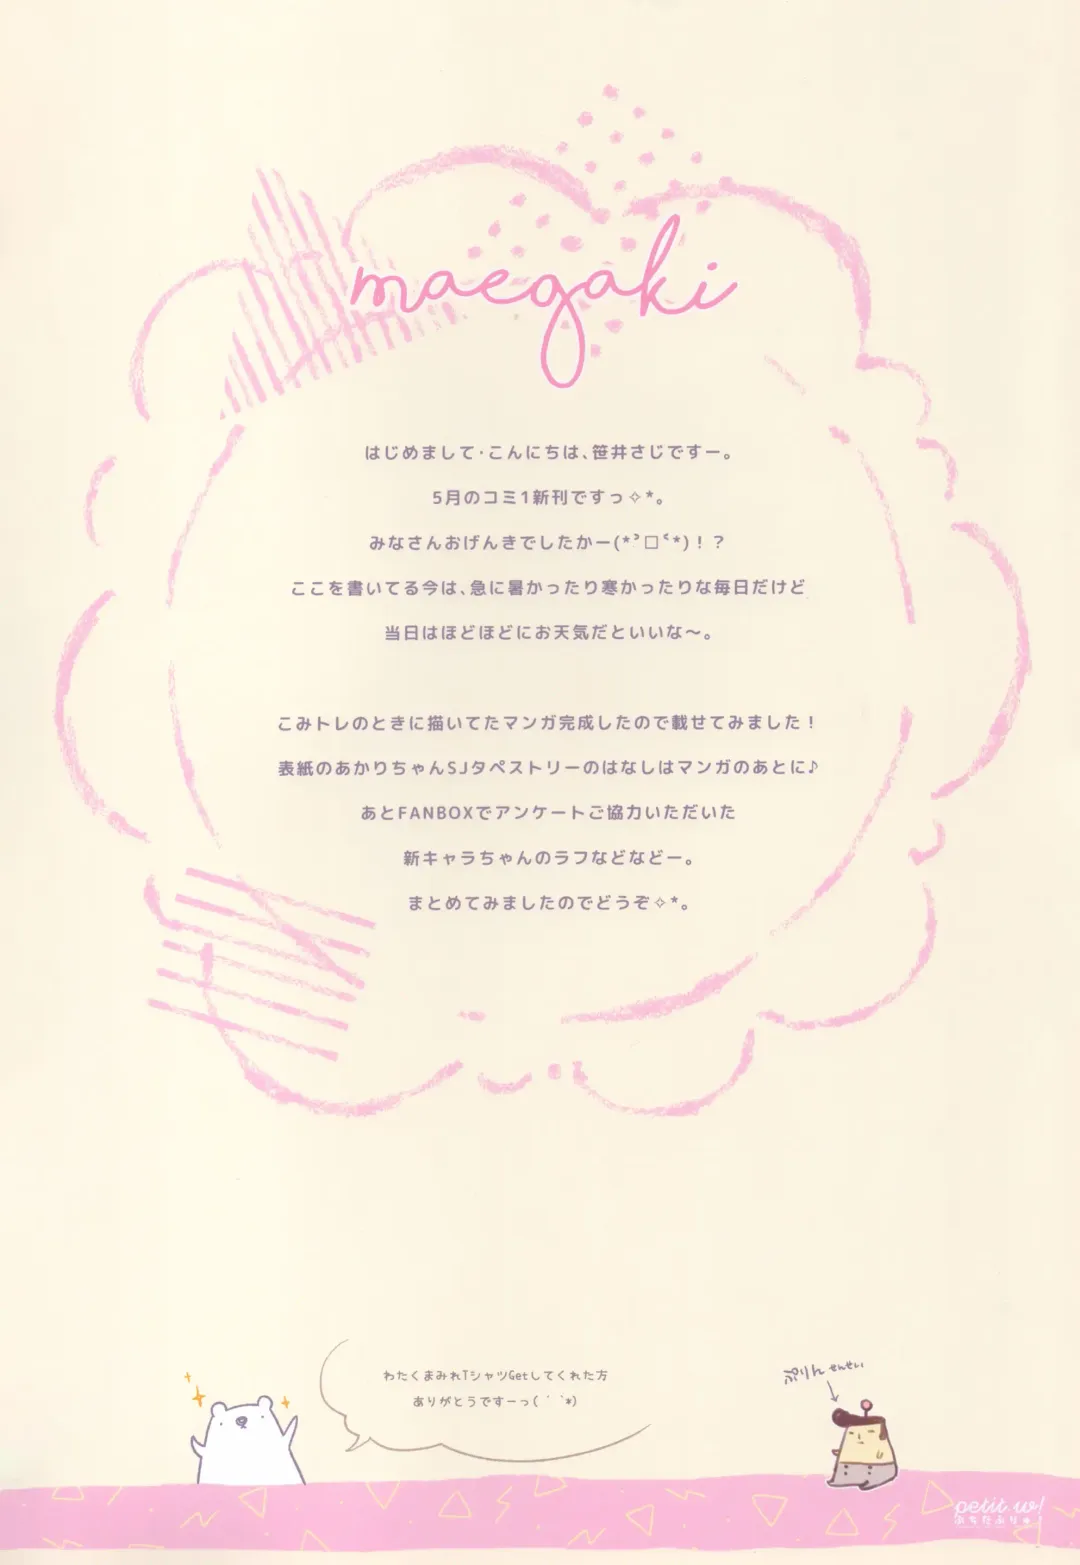 maegaki
はじめまして・こんにちは、笹井さじですー。
5月のコミ1新刊ですっ✧*。
みなさんおげんきでしたかー(*˃̵□˂̵*)！？
ここを書いてる今は、急に暑かったり寒かったりな毎日だけど
当日はほどほどにお天気だといいな〜。
こみトレのときに描いてたマンガ完成したので載せてみました！
表紙のあかりちゃんSJタペストリーのはなしはマンガのあとに♪
あとFANBOXでアンケートご協力いただいた
新キャラちゃんのラフなどなどー。
まとめてみましたのでどうぞ✧*。
わたくまみれTシャツGetしてくれた方
ありがとうですーっ(´ `*)
ぷりんせんせい
petit w!
ぷちたぶりゅ！